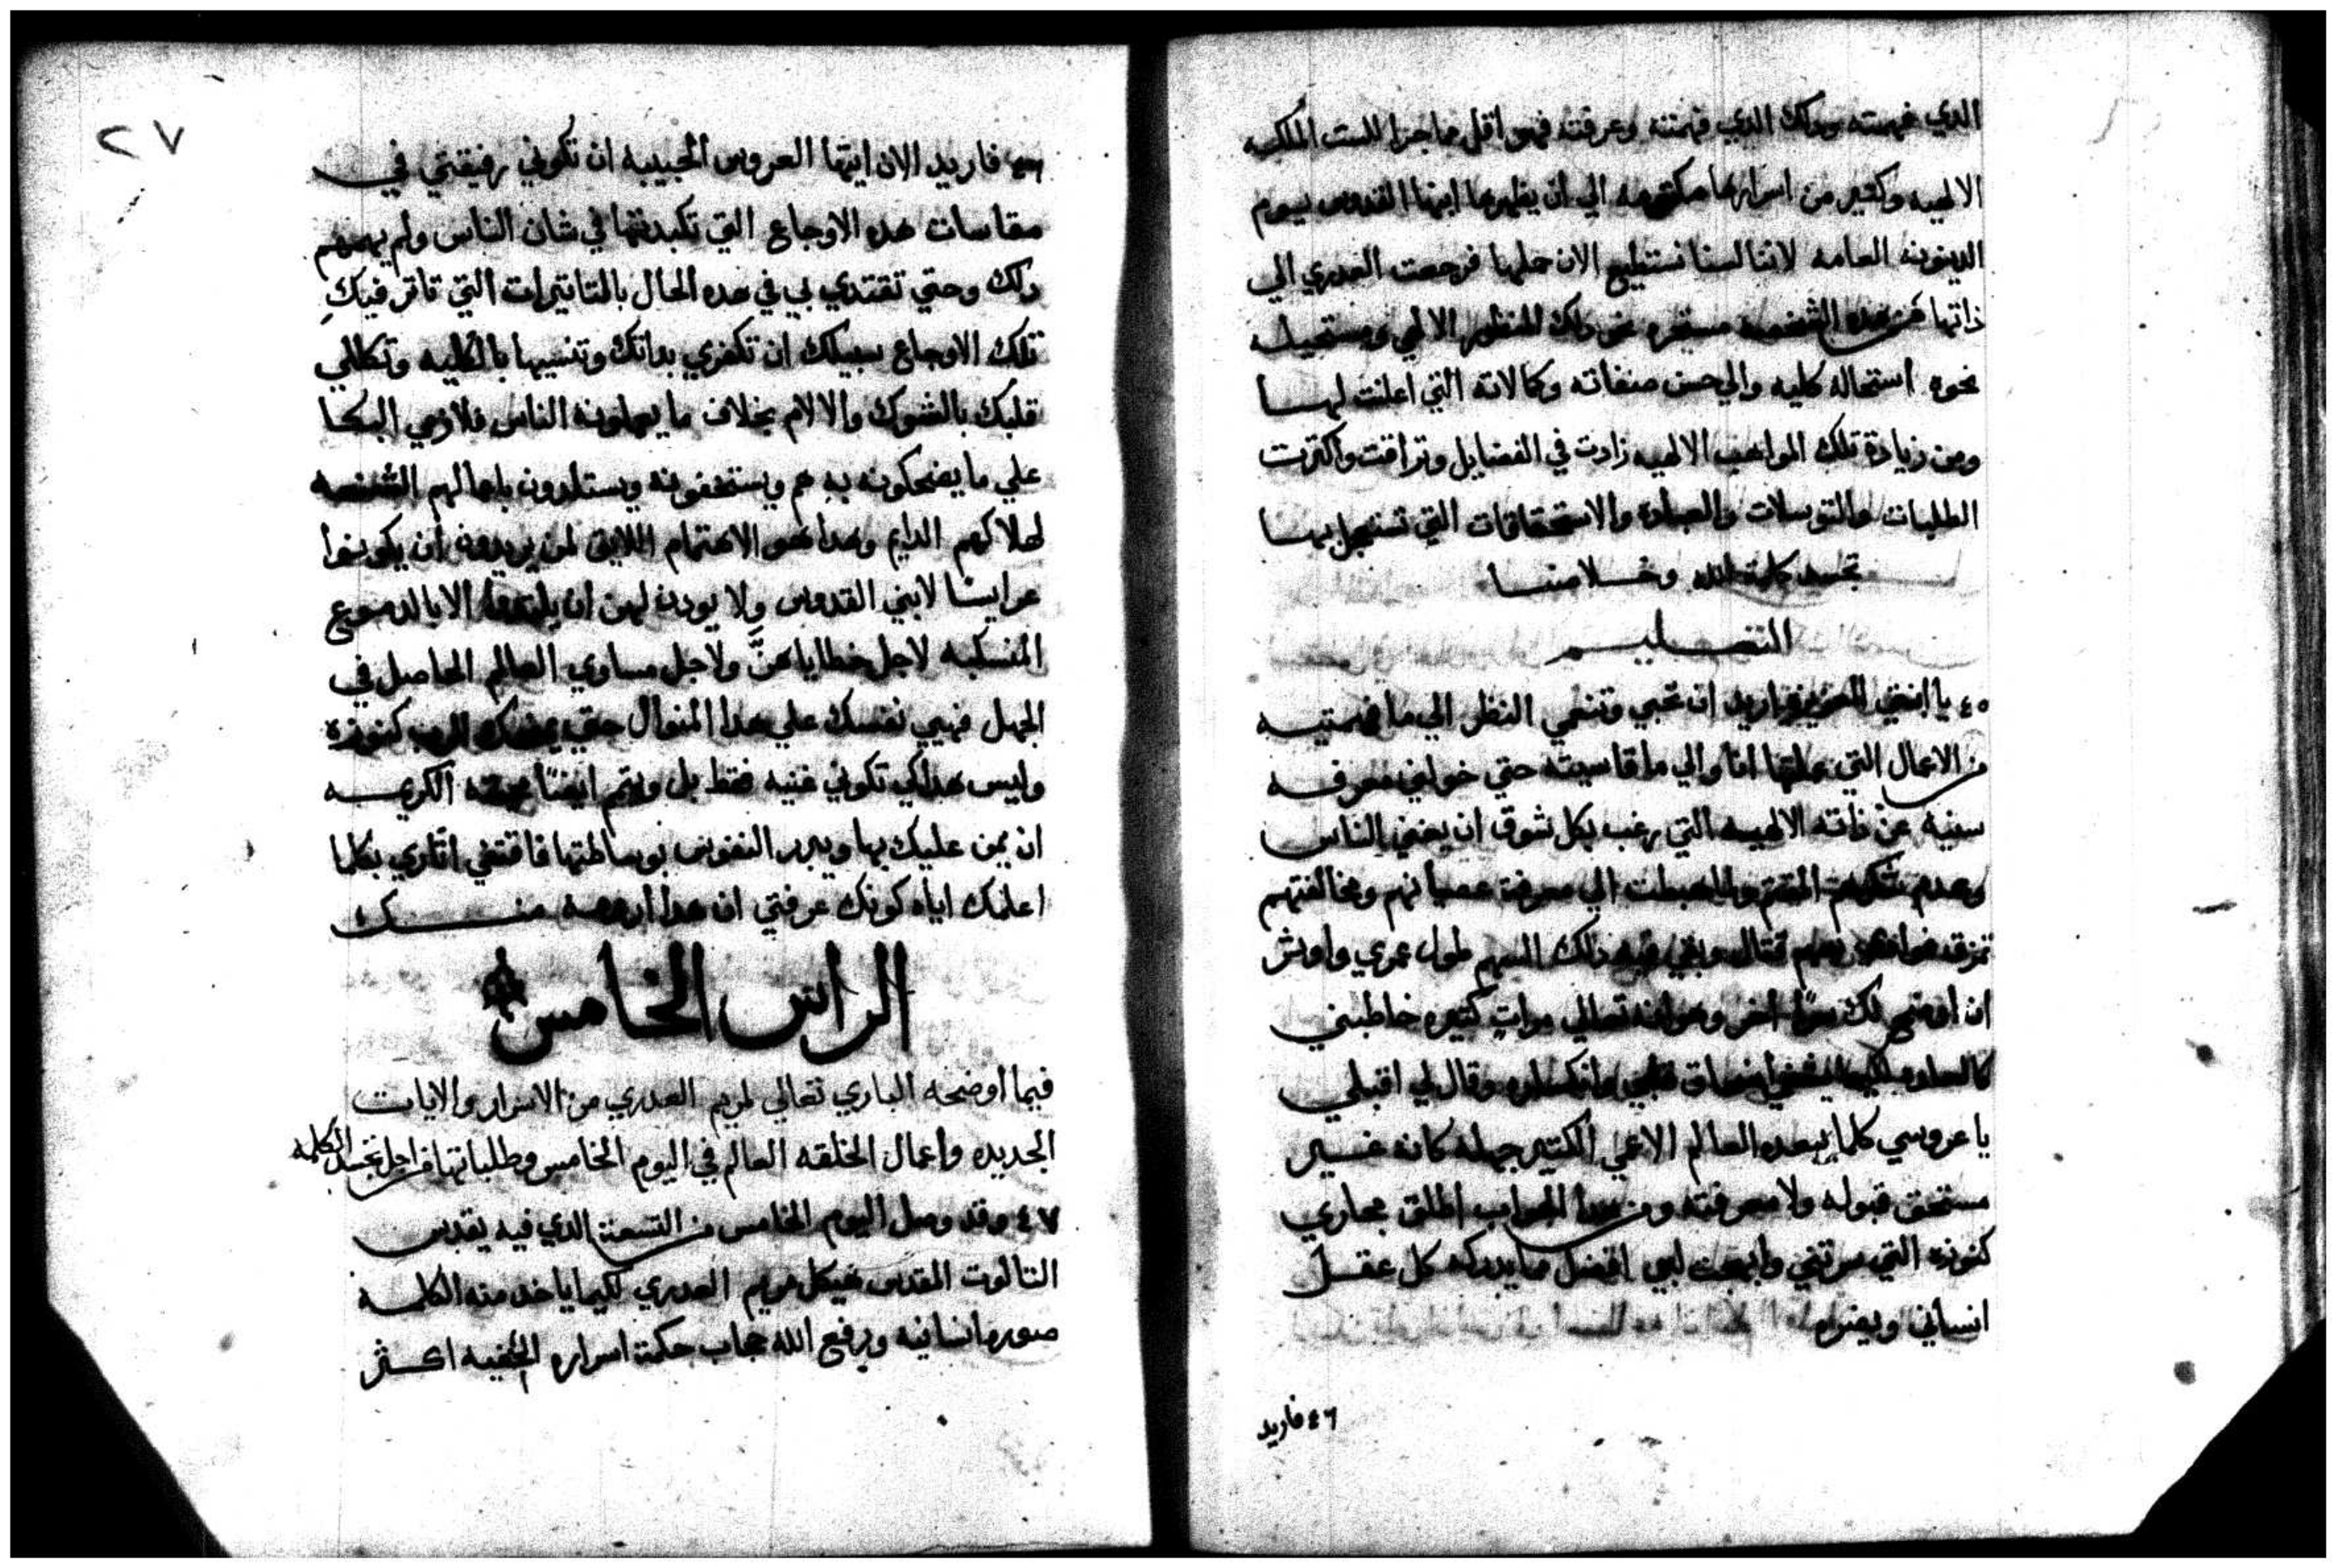 الدي فهمته ودلك الدي فهمته وعرفته فهو اقل مما جرا للست الملكه
الالهيه وكتير من اسرارها مكتومه الي ان يظهرها ابنها القدوس بيوم
الدينونه العامه لاننا لسنا نستطيع الان حلها فرجعت العدري الي
ذاتها من هده مستقره نحو دلك المنظور الالهي ومستحيله
نحوه استحاله كليه والي حسن صفاته وكمالاته التي اعلنت لهـا
ومن زيادة تلك المواهب الالهيه زادت في الفضايل وتراقت واكترت
الطلبات والتوسلات والعباده والاستحقاقات التي تستعجل بهـا
تجسد كلمة الله وخلاصنـا
التعـليـم
٤٥ يا ابنتي العزيزه اريد ان تحبي وتنعمي النظر الي ما فهمتيـه
من الاعمال التي عملتها انا والي ما قاسيته حتي خولني معرفـه
سنيه عن ذاته الالهيه التي رغب بكل شوق ان يغني الناس
وعدم الي معرفة عصيانهم ومخالفتهم
دلك السهم طول عمري واوتر
ان اوضح لك سرا اخر وهو انه تعالي مراتٍ كتيره خاطبني
وقال لي اقبلي
يا عروسي كلما يبعده العالم الاعمي الكتير جهله كانه غـير
مستحق قبوله ولا معرفته ومن هدا الجواب اطلق مجاري
كنوزه التي سرتني وابهجت لبي افضل مما يدركه كل عقـل
انساني ويفتراه
٤٦ فاريد
٢٧
٤٦ فاريد الان ايتها العروس الحبيبه ان تكوني رفيقتي في
مقاسات هده الاوجاع التي تكبدتها في شان الناس ولم يهمهم
دلك وحتي تقتدي بي في هده الحال بالتاتيرات التي تاتر فيكِ
تلك الاوجاع سبيلك ان تكفري بداتك وتنسيها بالكليه وتكللي
قلبك بالشوك والالام بخلاف ما يعملونه الناس فلازمي البكـا
علي ما يضحكون به هم ويستخفونه ويستلدون باعمالهم
لهلاكهم الدايم وهدا هو الاهتمام اللايق لمن يريدون ان يكونوا
عرايسًا لابني القدوس ولا يودن لهن ان الا بالدموع
المنسكبه لاجل خطاياهنَّ ولاجل مساوي العالم الحاصل في
الجهل فهيي نفسك علي هدا المنوال حتي يمنحك الرب كنوزه
وليس هدا لكي تكوني غنيه فقط بل ويتم ايضًا الكريمـه
ان يمن عليك بها ويبرر النفوس بوساطتها فاقتفي اتاري بكلما
اعلمك اياه كونك عرفتي ان هدا اريده منـك
الراس الخامس
فيما اوضحه الباري تعالي لمريم العدري من الاسرار والايات
الجديده واعمال الخلقه العالم في اليوم الخامس وطلباتها من اجل تجسد الكلمه
٤٧ وقد وصل اليوم الخامس من التسعة الدي فيه يقدس
التالوت المقدس هيكل مريم العدري لكيما ياخد منه الكلمـه
صوره انسانيه ويرفع الله حجاب حكمة اسراره الخفيه اكـثر